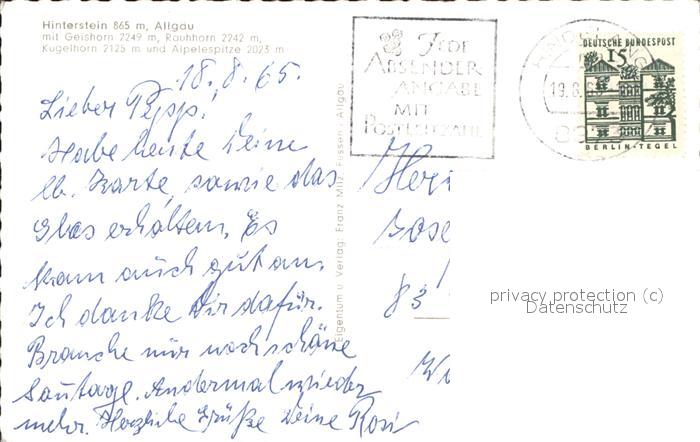 Hinterstein 865 m, Allgäu
mit Geishorn 2249 m, Rauhhorn 2242 m,
Kugelhorn 2125 m und Älpelespitze 2023 m
18.8.65.
Lieber Pepp!
Habe heute Deine
lb. Karte, sowie das
Glas erhalten. Es
kam auch gut an.
Ich danke Dir dafür.
Brauche nur noch schöne
Sonntage. Andermal wieder
mehr. Herzliche Grüße Deine Rosi
Eigentum u. Verlag: Franz Milz, Füssen, Allgäu
JEDE
ABSENDER
ANGABE
MIT
POSTLEITZAHL
HINDELANG
19.8.
DEUTSCHE BUNDESPOST
15
BERLIN-TEGEL
83
privacy protection (c)
Datenschutz